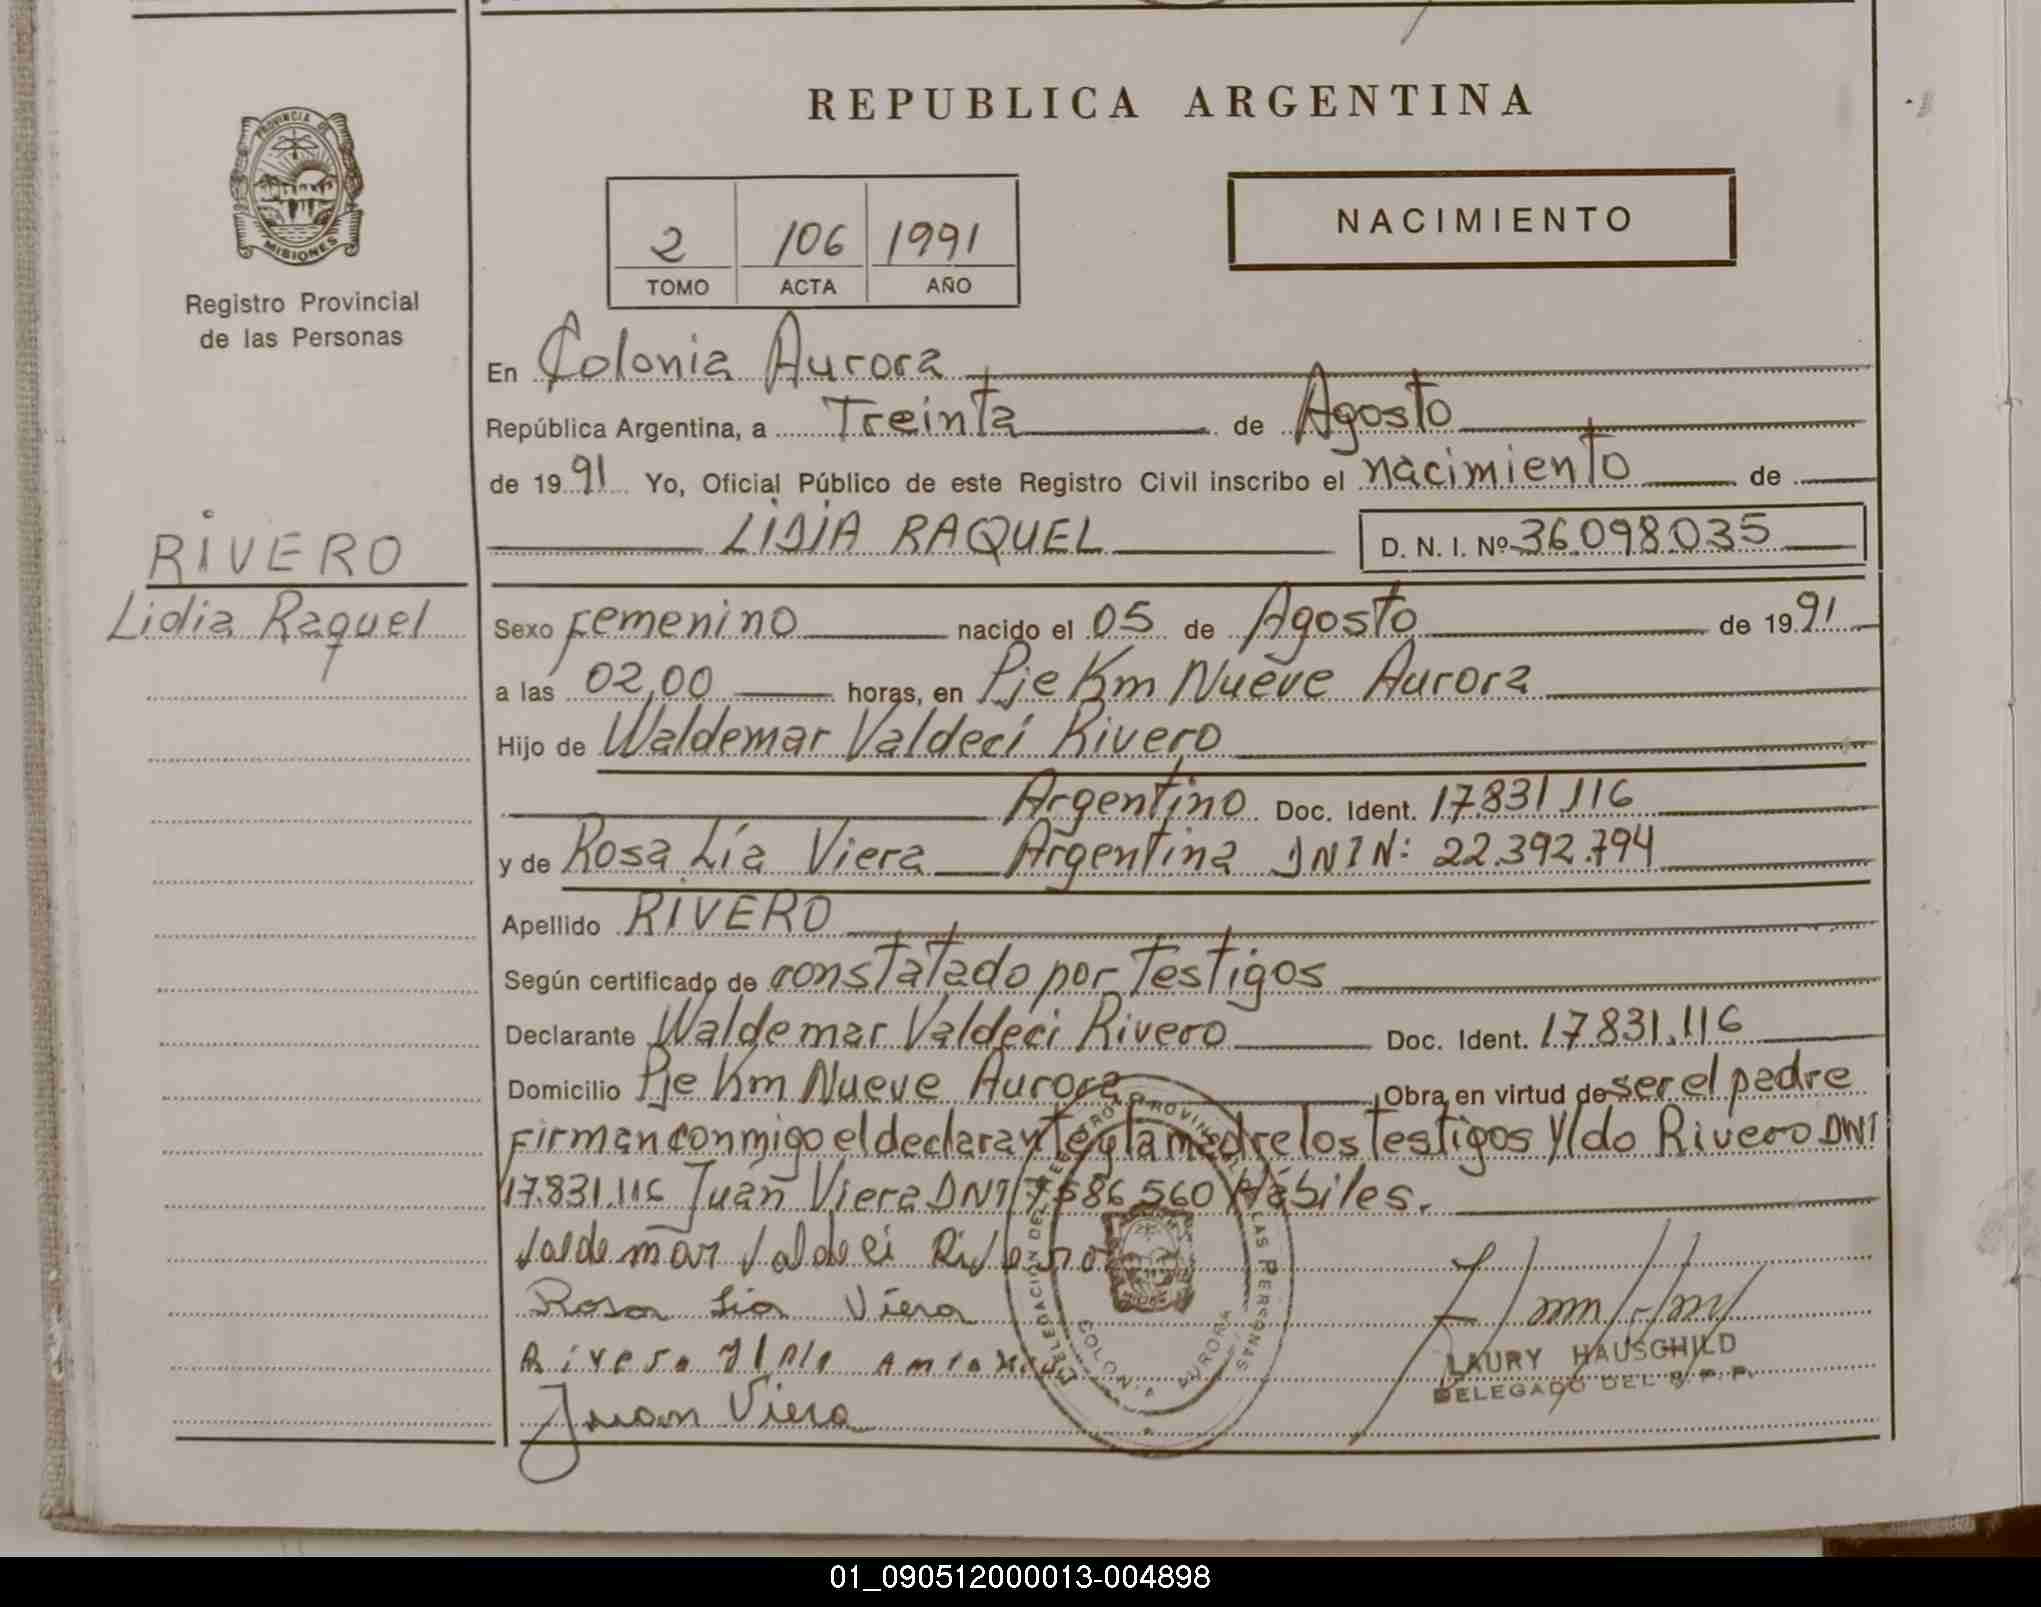 REPUBLICA ARGENTINA
PROVINCIA DE
MISIONES
Registro Provincial
de las Personas
2 106 1991
TOMO ACTA AÑO
NACIMIENTO
En Colonia Aurora
República Argentina, a Treinta de Agosto
de 1991 Yo, Oficial Público de este Registro Civil inscribo el nacimiento de
LIDIA RAQUEL D. N. I. Nº 36.098.035
RIVERO
Lidia Raquel
Sexo Femenino nacido el 05 de Agosto de 1991
a las 02,00 horas, en Pje Km Nueve Aurora
Hijo de Waldemar Valdeci Rivero
Argentino Doc. Ident. 17.831.116
y de Rosa Lía Viera Argentina DNIN: 22.392.794
Apellido RIVERO
Según certificado de constatado por Testigos
Declarante Waldemar Valdeci Rivero Doc. Ident. 17.831.116
Domicilio Pje Km Nueve Aurora Obra en virtud de ser el padre
Firman conmigo el declarante y la madre los Testigos Yldo Rivero DNI
17.831.116 Juan Viera DNI 7586560 Hábiles.
Valdemar Valdeci Rivero
Rosa Lia Viera
Rivero Ildo Antonio
Juan Viera
DELEGACION DEL REGISTRO PROVINCIAL DE LAS PERSONAS
COLONIA AURORA
LAURY HAUSCHILD
DELEGADO DEL R. P. P.
01_090512000013-004898